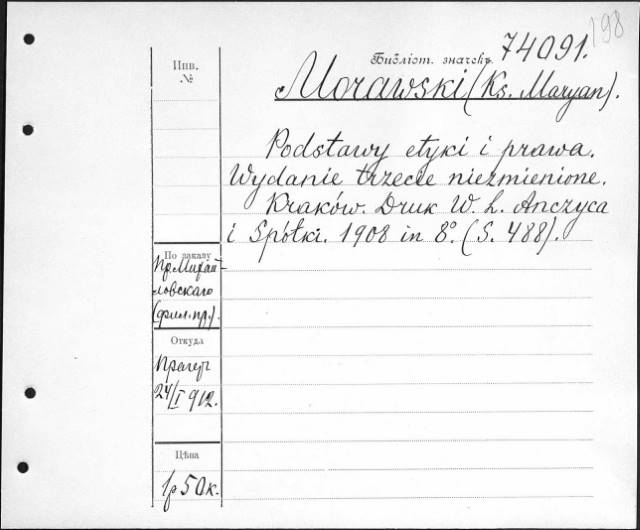 198
Библіот. значекъ 74091.
Инв.
№
Morawski (Ks. Maryan).
Podstawy etyki i prawa.
Wydanie trzecie niezmienione.
Kraków. Druk W. L. Anczyca
i Spółki. 1908 in 8º. (S. 488).
По заказу
Пр. Михай-
ловскаго
(фил. пр.).
Откуда
Прагеръ
24/I 912.
Цѣна
1р 50к.